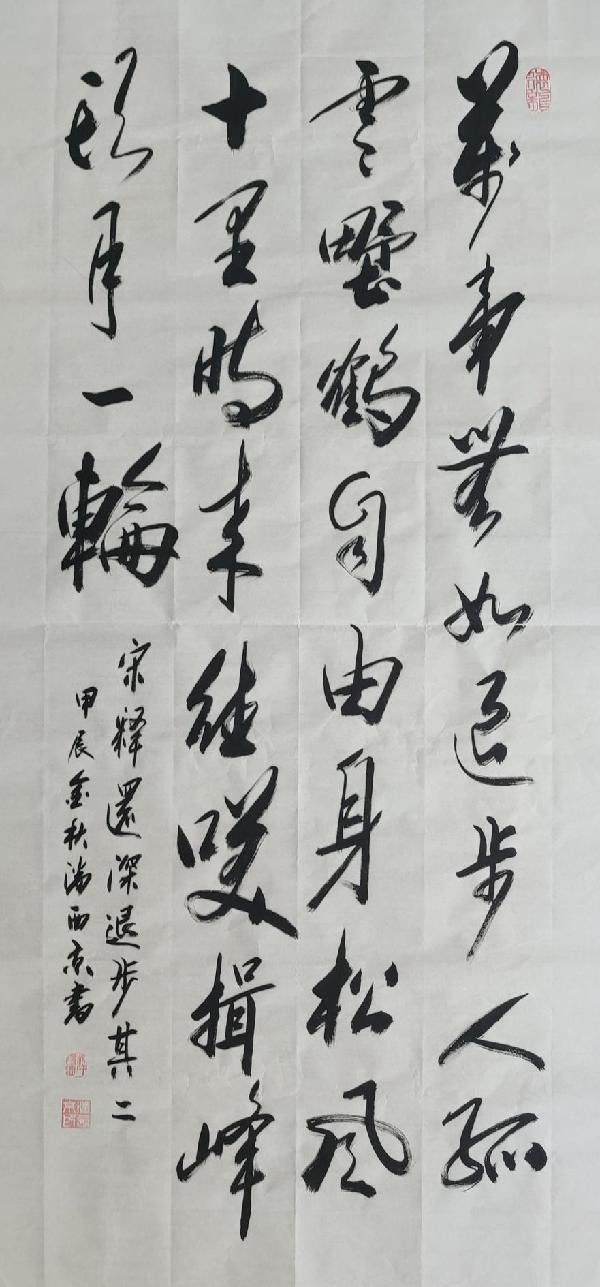 萬事無如退步人孤
雲墅鶴自由身松風
十里時來往咲揖峰
頭月一輪
宋释還深退步其二
甲辰金秋西京書